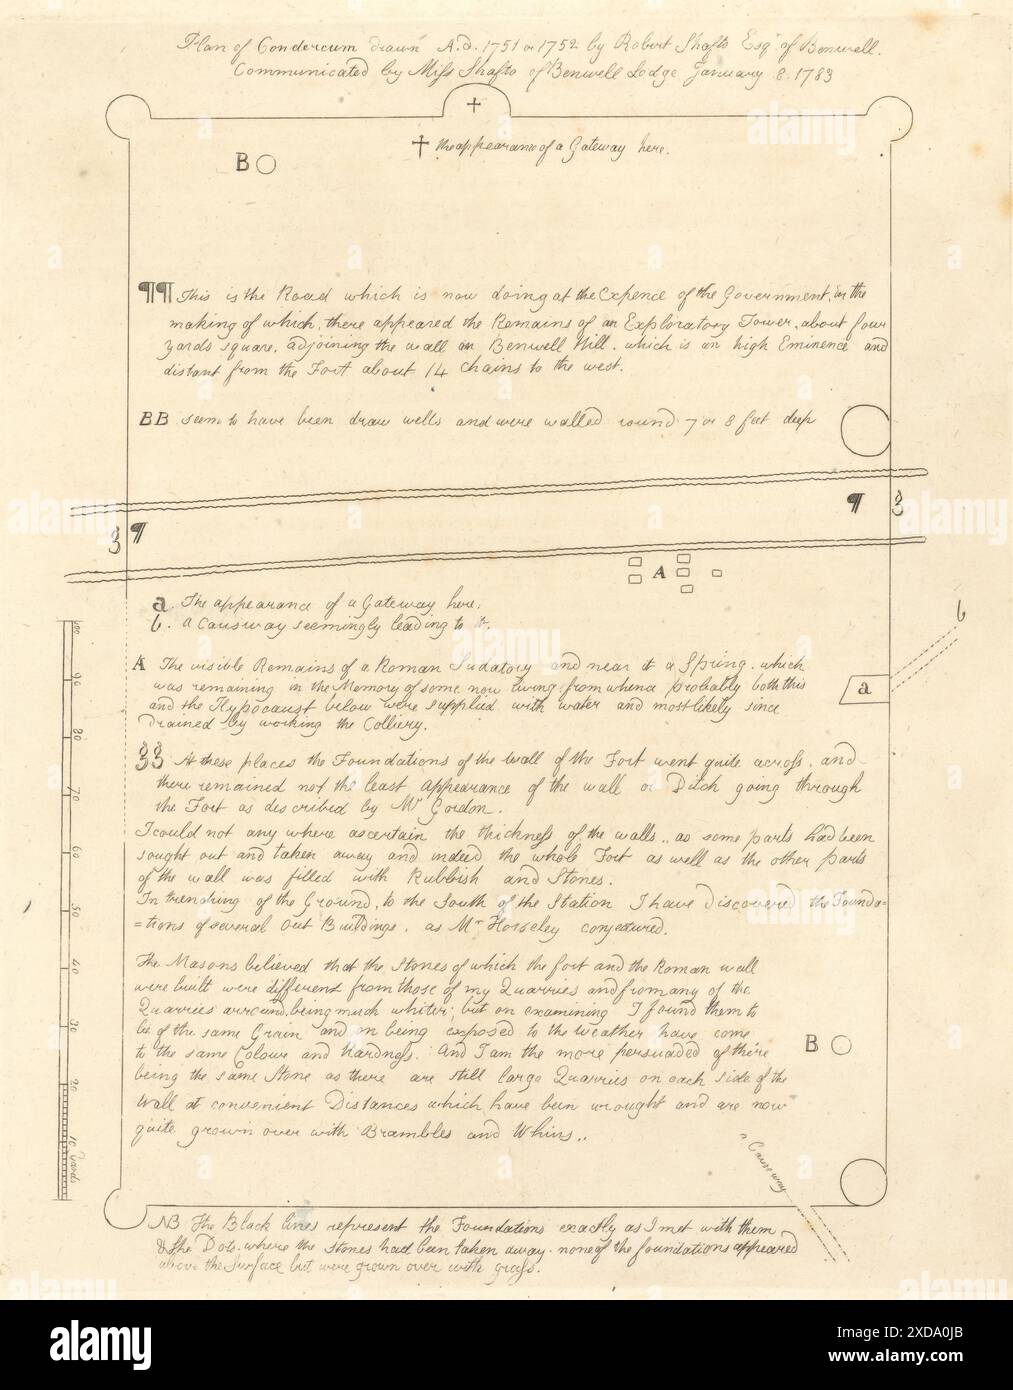 Plan of Condercum drawn A.d. 1751 or 1752 by Robert Shafto Esqr of Benwell.
Communicated by Miſs Shafto of Benwell Lodge January 8. 1783
✝
✝ the appearance of a Gateway here.
B
¶¶ This is the Road which is now doing at the Expence of the Government, in the
making of which, there appeared the Remains of an Exploratory Tower, about four
yards square, adjoining the wall on Benwell Hill, which is an high Eminence and
distant from the Fort about 14 chains to the west.
BB seem to have been draw wells and were walled round 7 or 8 feet deep
¶ 3
3 ¶
A
a. The appearance of a Gateway here.
b. a Causway seemingly leading to it.
b
a
A The visible Remains of a Roman Sudatory and near it a Spring, which
was remaining in the Memory of some now living from whence probably both this
and the Hypocaust below were supplied with water and most likely since
Drained by working the Colliery.
33 At these places the Foundations of the wall of the Fort went quite acroſs, and
there remained not the least appearance of the wall or Ditch going through
the Fort as described by Mr Gordon.
I could not any where ascertain the thickneſs of the walls, as some parts had been
sought out and taken away and indeed the whole Fort as well as the other parts
of the wall was filled with Rubbish and Stones.
In trenching of the Ground, to the South of the Station I have Discovered the Founda=
=tions of several Out Buildings, as Mr Horseley conjectured.
The Masons believed that the Stones of which the fort and the Roman wall
were built were different from those of my Quarries and from any of the
Quarries arround, being much whiter; but on examining I found them to
be of the same Grain and on being exposed to the weather have come
to the same Colour and Hardneſs. And I am the more persuaded of their
being the same Stone as there are still large Quarries on each side of the
Wall at convenient Distances which have been wrought and are now
quite grown over with Brambles and Whins..
B
a Causway
100
90
80
70
60
50
40
30
20
10 Yards
NB The Black lines represent the Foundations exactly as I met with them
& the Dots, where the Stones had been taken away. none of the foundations appeared
above the Surface but were grown over with graſs.
alamy
Image ID: 2XDA0JB
www.alamy.com